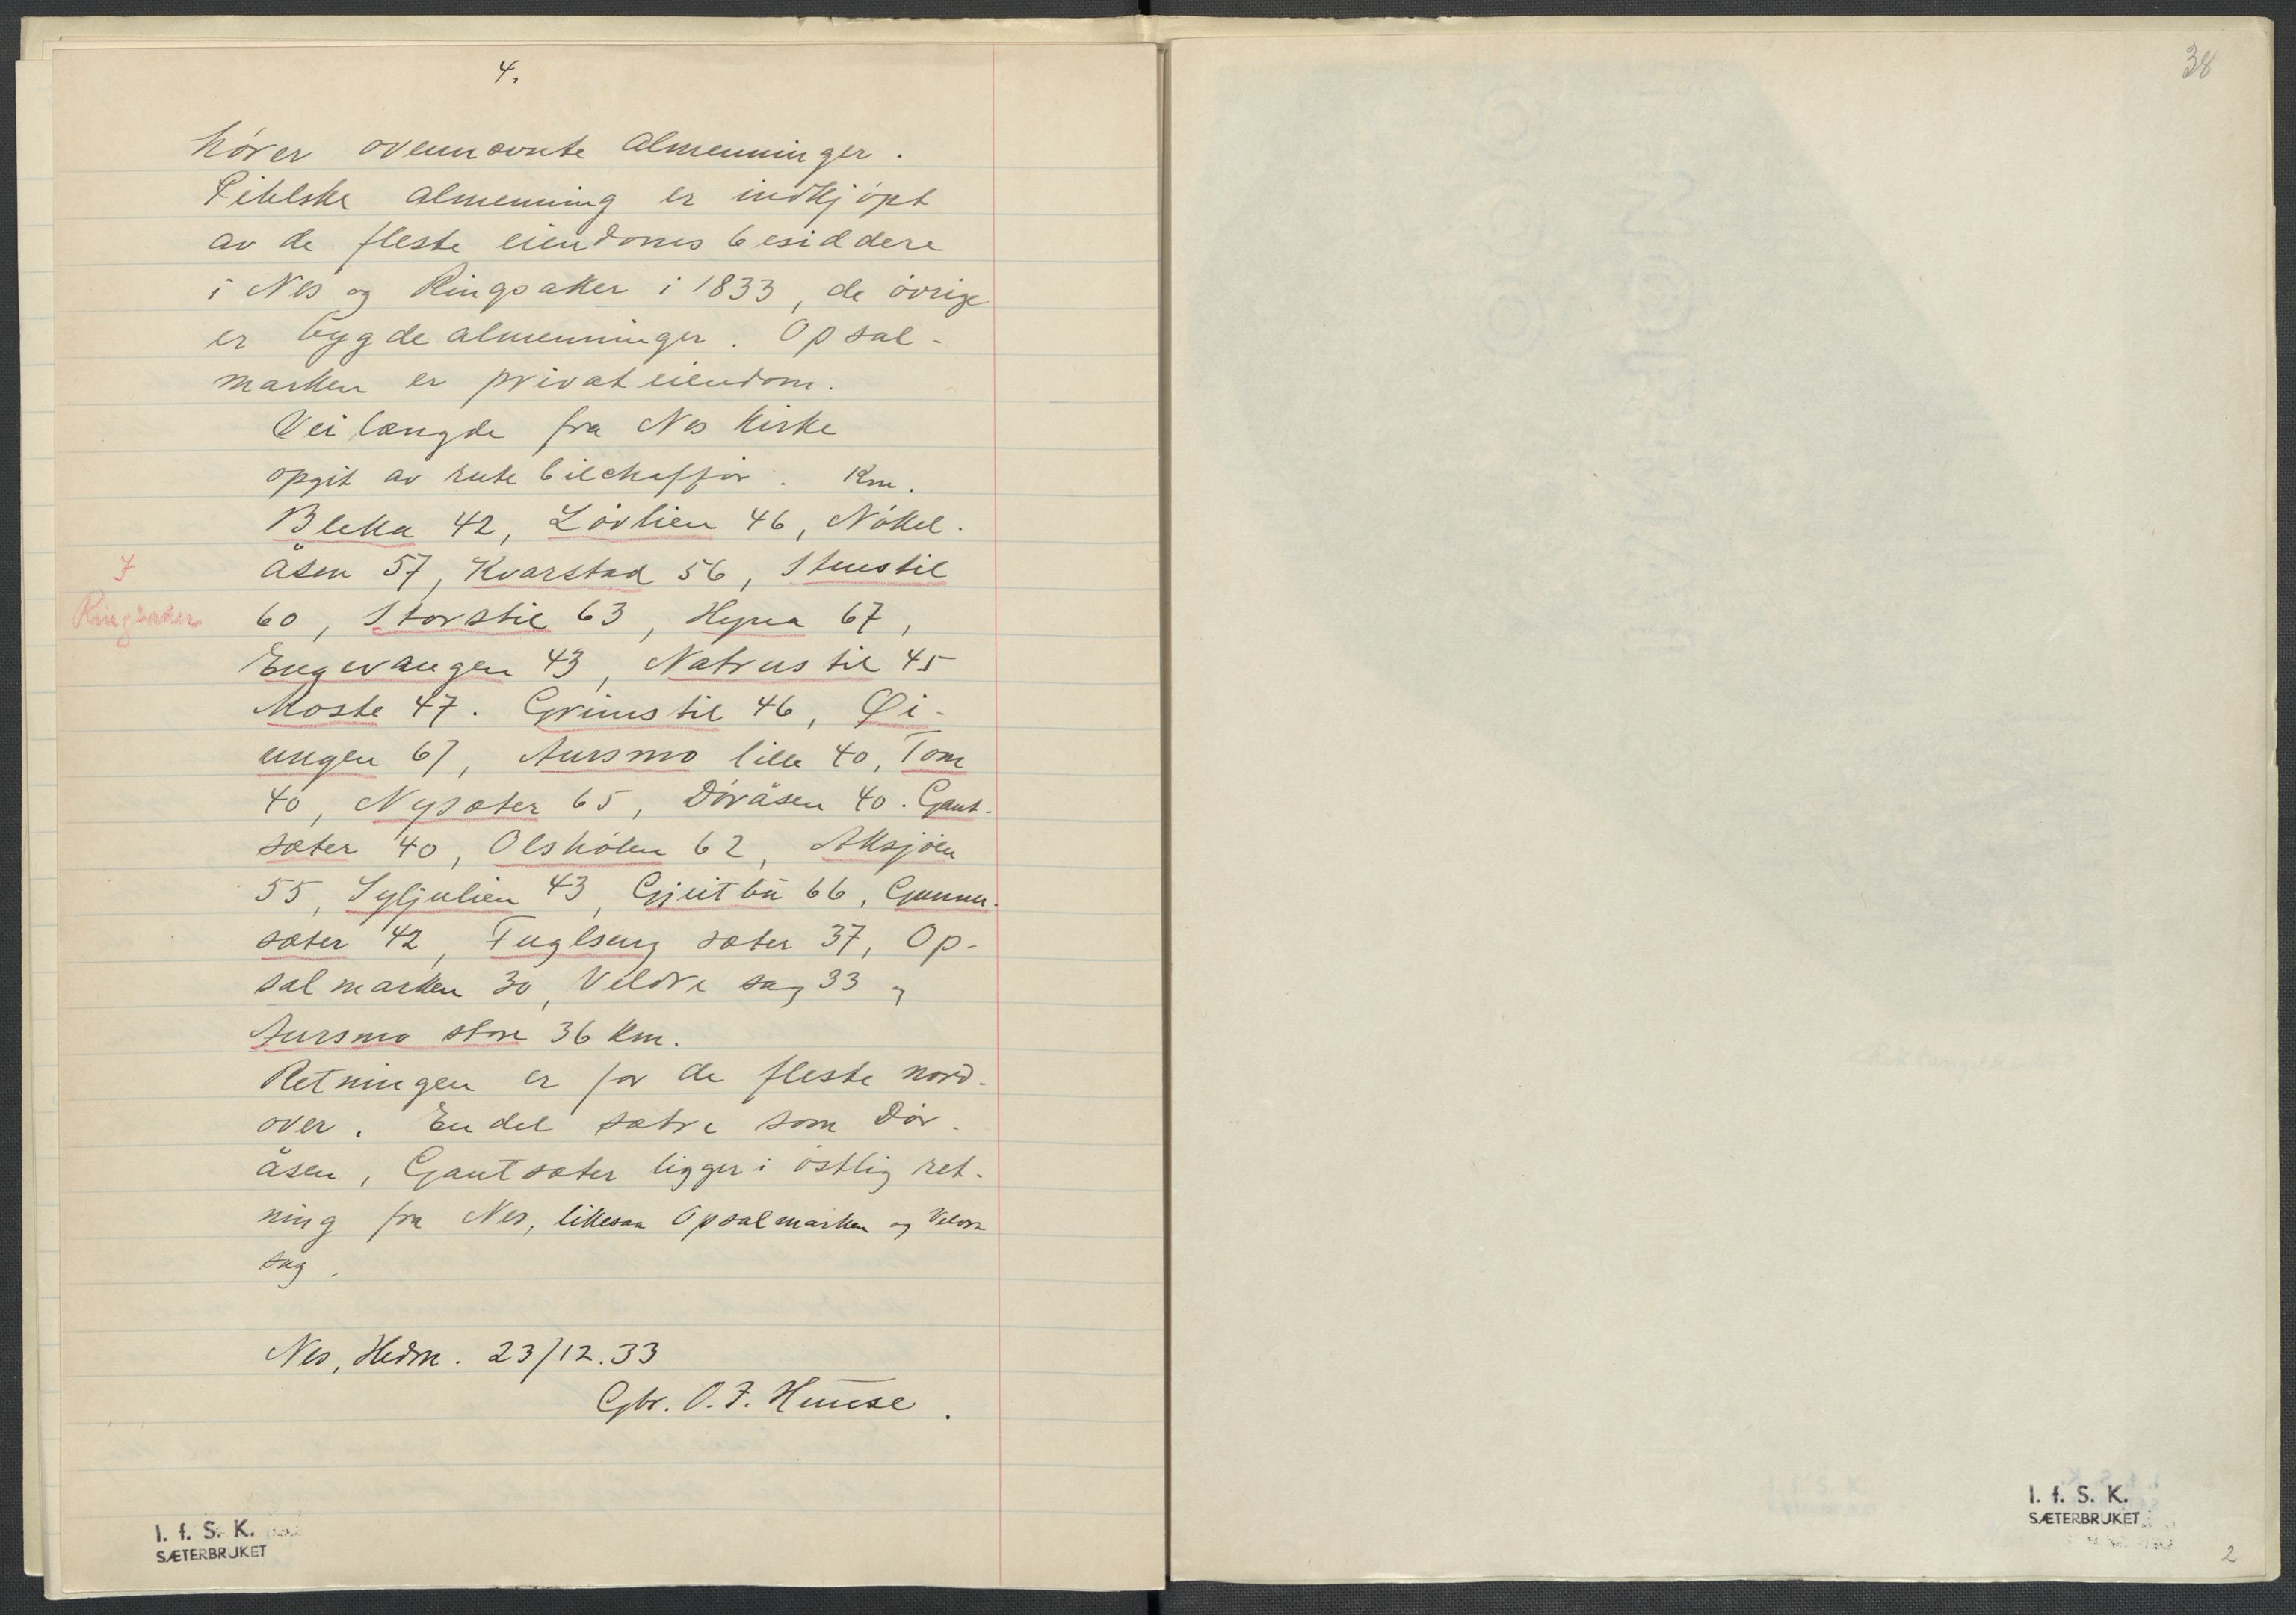 4.
hører ovennævnte almenninger.
Pihlske almenning er indkjöpt
av de fleste eiendoms besiddere
i Nes og Ringsaker i 1833, de övrige
er bygde almenninger. Opsal-
marken er privat eiendom.
Vei længde fra Nes kirke
opgit av rute bilchafför. Km.
Blekka 42, Lövlien 46, Nökkel-
åsen 57, Kvarstad 56, Stenstil
I
Ringsaker
60, Storstil 63, Hynna 67,
Engevangen 43, Natrustil 45
Moste 47. Grimstil 46, Øi-
ungen 67, Aursmo lille 40, Tom
40, Nysæter 65, Döråsen 40. Gaut-
sæter 40, Olshölen 62, Aksjöen
55, Syljulien 43, Gjeitbu 66, Gunner-
sæter 42, Fuglseng sæter 37, Op-
sal marken 30, Veldre sag 33 og
Aursmo store 36 km.
Retningen er for de fleste nord-
over. En del sætre som Dör-
åsen, Gautsæter ligger i östlig ret-
ning fra Nes, likesaa Opsalmarken og Veldre
sag.
Nes, Hedm. 23/12.33
Gbr. O. F. Huuse.
I. f. S. K.
SÆTERBRUKET
38
I. f. S. K.
SÆTERBRUKET
2